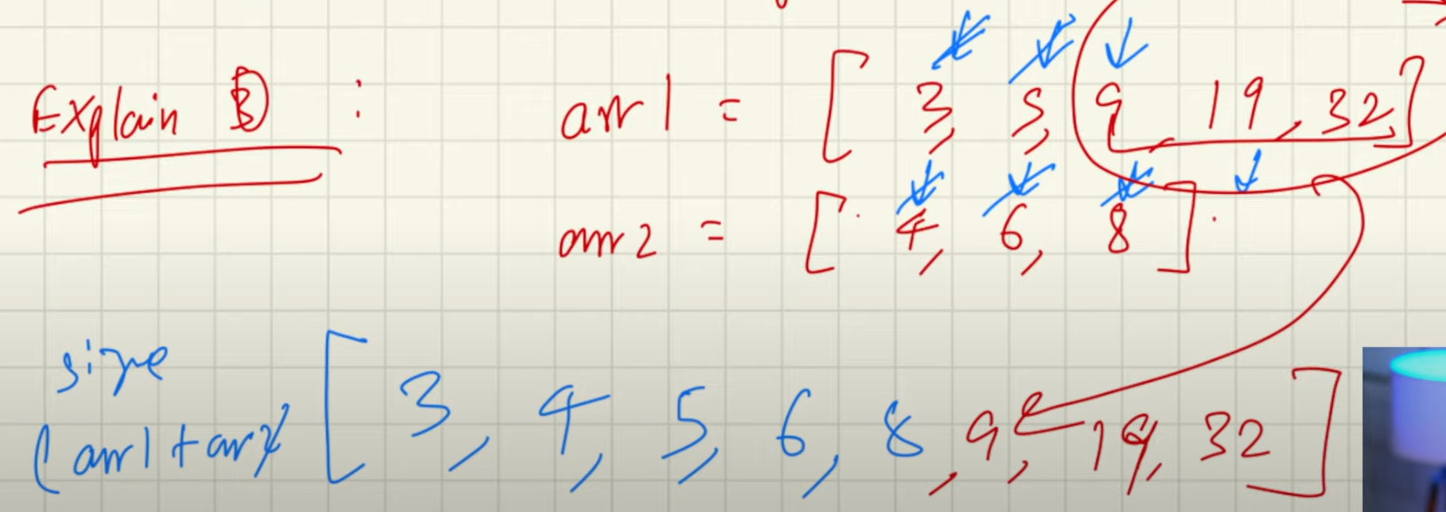 Explain ③ : arr1 = [ 3, 5, 9, 19, 32, ]
arr2 = [ 4, 6, 8 ]
size
(arr1 + arr2) [ 3, 4, 5, 6, 8, 9, 19, 32 ]